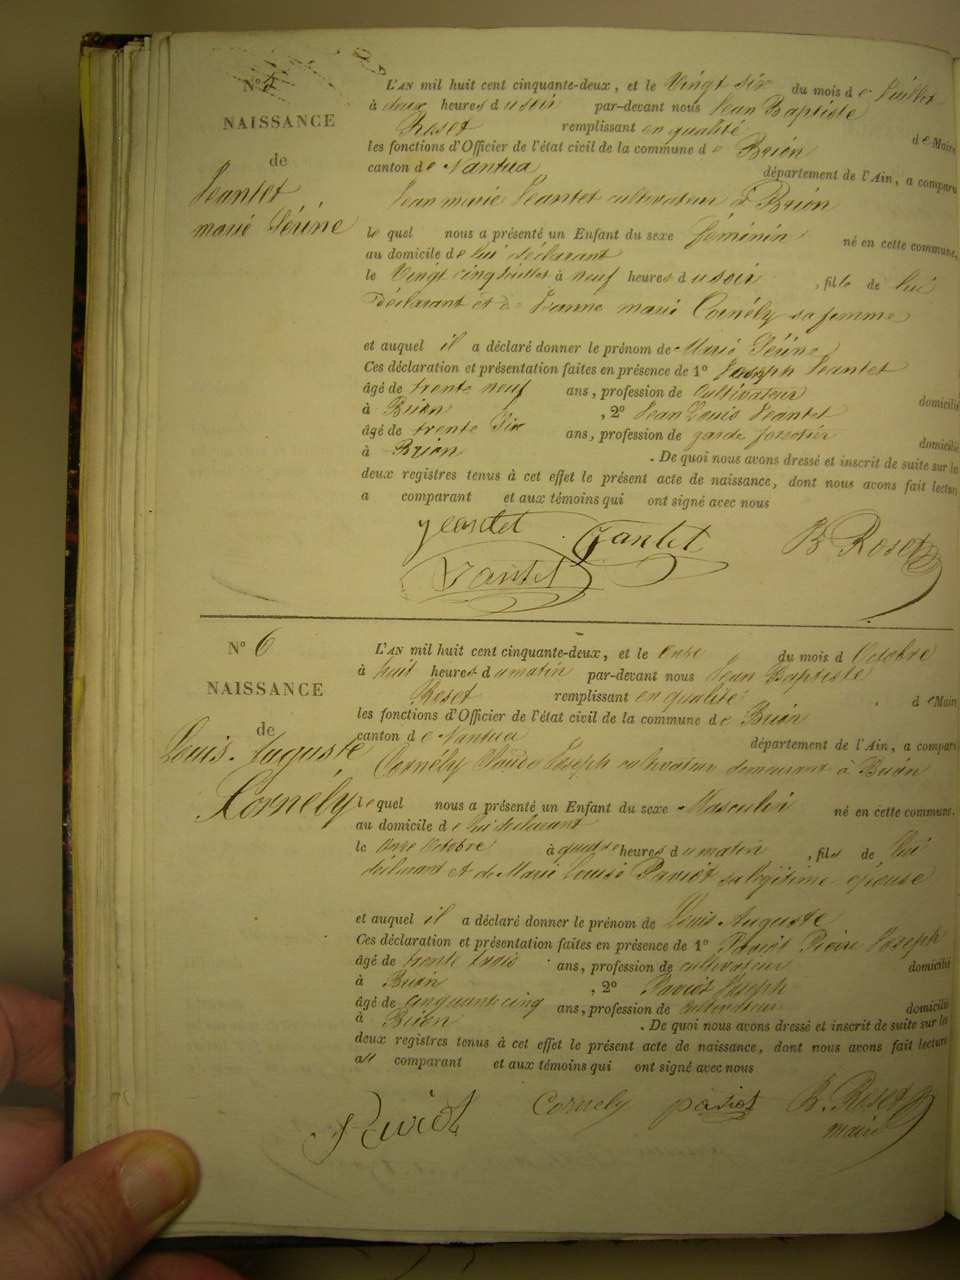 N° 5
NAISSANCE
de
Jeantet
marie Périne
L'AN mil huit cent cinquante-deux, et le Vingt six du mois de Juillet
à deux heures du soir par-devant nous Jean Baptiste
Roset remplissant en qualité de Maire
les fonctions d'Officier de l'état civil de la commune de Brion
canton de Nantua département de l'Ain, a comparu
Jean marie Jeantet cultivateur à Brion
le quel nous a présenté un Enfant du sexe féminin né en cette commune,
au domicile de lui déclarant
le Vingt cinq Juillet à neuf heures du soir, fille de lui
Déclarant et de Jeanne marie Cornély sa femme
et auquel il a déclaré donner le prénom de Marie Périne
Ces déclaration et présentation faites en présence de 1° Joseph Jeantet
âgé de trente neuf ans, profession de cultivateur domicilié
à Brion, 2° Jean Louis Jeantet
âgé de trente Six ans, profession de garde forestier domicilié
à Brion. De quoi nous avons dressé et inscrit de suite sur les
deux registres tenus à cet effet le présent acte de naissance, dont nous avons fait lecture
a comparant et aux témoins qui ont signé avec nous
Jeantet Jantet B Roset
Jantet
N° 6
NAISSANCE
de
Louis Auguste
Cornély
L'AN mil huit cent cinquante-deux, et le onze du mois d Octobre
à huit heures du matin par-devant nous Jean Baptiste
Roset remplissant en qualité de Maire
les fonctions d'Officier de l'état civil de la commune de Brion
canton de Nantua département de l'Ain, a comparu
Cornély Claude Joseph cultivateur demeurant à Brion
le quel nous a présenté un Enfant du sexe Masculin né en cette commune,
au domicile de lui déclarant
le onze Octobre à quatre heures du matin, fils de lui
déclarant et de Marie Louise Paviot sa légitime épouse
et auquel il a déclaré donner le prénom de Louis Auguste
Ces déclaration et présentation faites en présence de 1° Paviot Pierre Joseph
âgé de trente trois ans, profession de cultivateur domicilié
à Brion, 2° Paviot Joseph
âgé de cinquante cinq ans, profession de cultivateur domicilié
à Brion. De quoi nous avons dressé et inscrit de suite sur les
deux registres tenus à cet effet le présent acte de naissance, dont nous avons fait lecture
au comparant et aux témoins qui ont signé avec nous
Paviot Cornely paviot B. Roset
maire